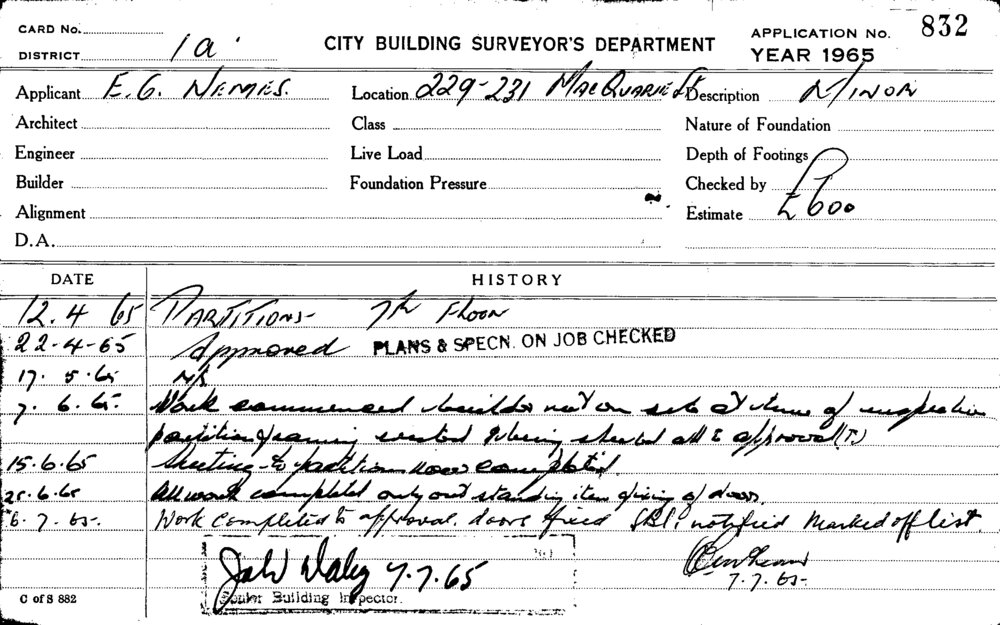 CARD No.
DISTRICT 1a
CITY BUILDING SURVEYOR'S DEPARTMENT
APPLICATION No. 832
YEAR 1965
Applicant E. G. NEMES. Location 229-231 MACQUARIE ST Description MINOR
Architect Class Nature of Foundation
Engineer Live Load Depth of Footings
Builder Foundation Pressure Checked by
Alignment Estimate £600
D.A.
DATE HISTORY
12.4 65 PARTITIONS- 7th FLOOR
22-4-65 Approved PLANS & SPECN. ON JOB CHECKED
17. 5.65 N/S
7. 6.65. Work commenced builder not on site at time of inspection
partition framing erected & being sheeted all to approval
15.6.65 Sheeting to partition now completed.
25.6.65 All work completed only outstanding item fixing of doors
6.7.65. Work completed to approval. doors fixed SBI. notified Marked off list.
John Daley 7.7.65
Senior Building Inspector.
7.7.65-
C of S 882